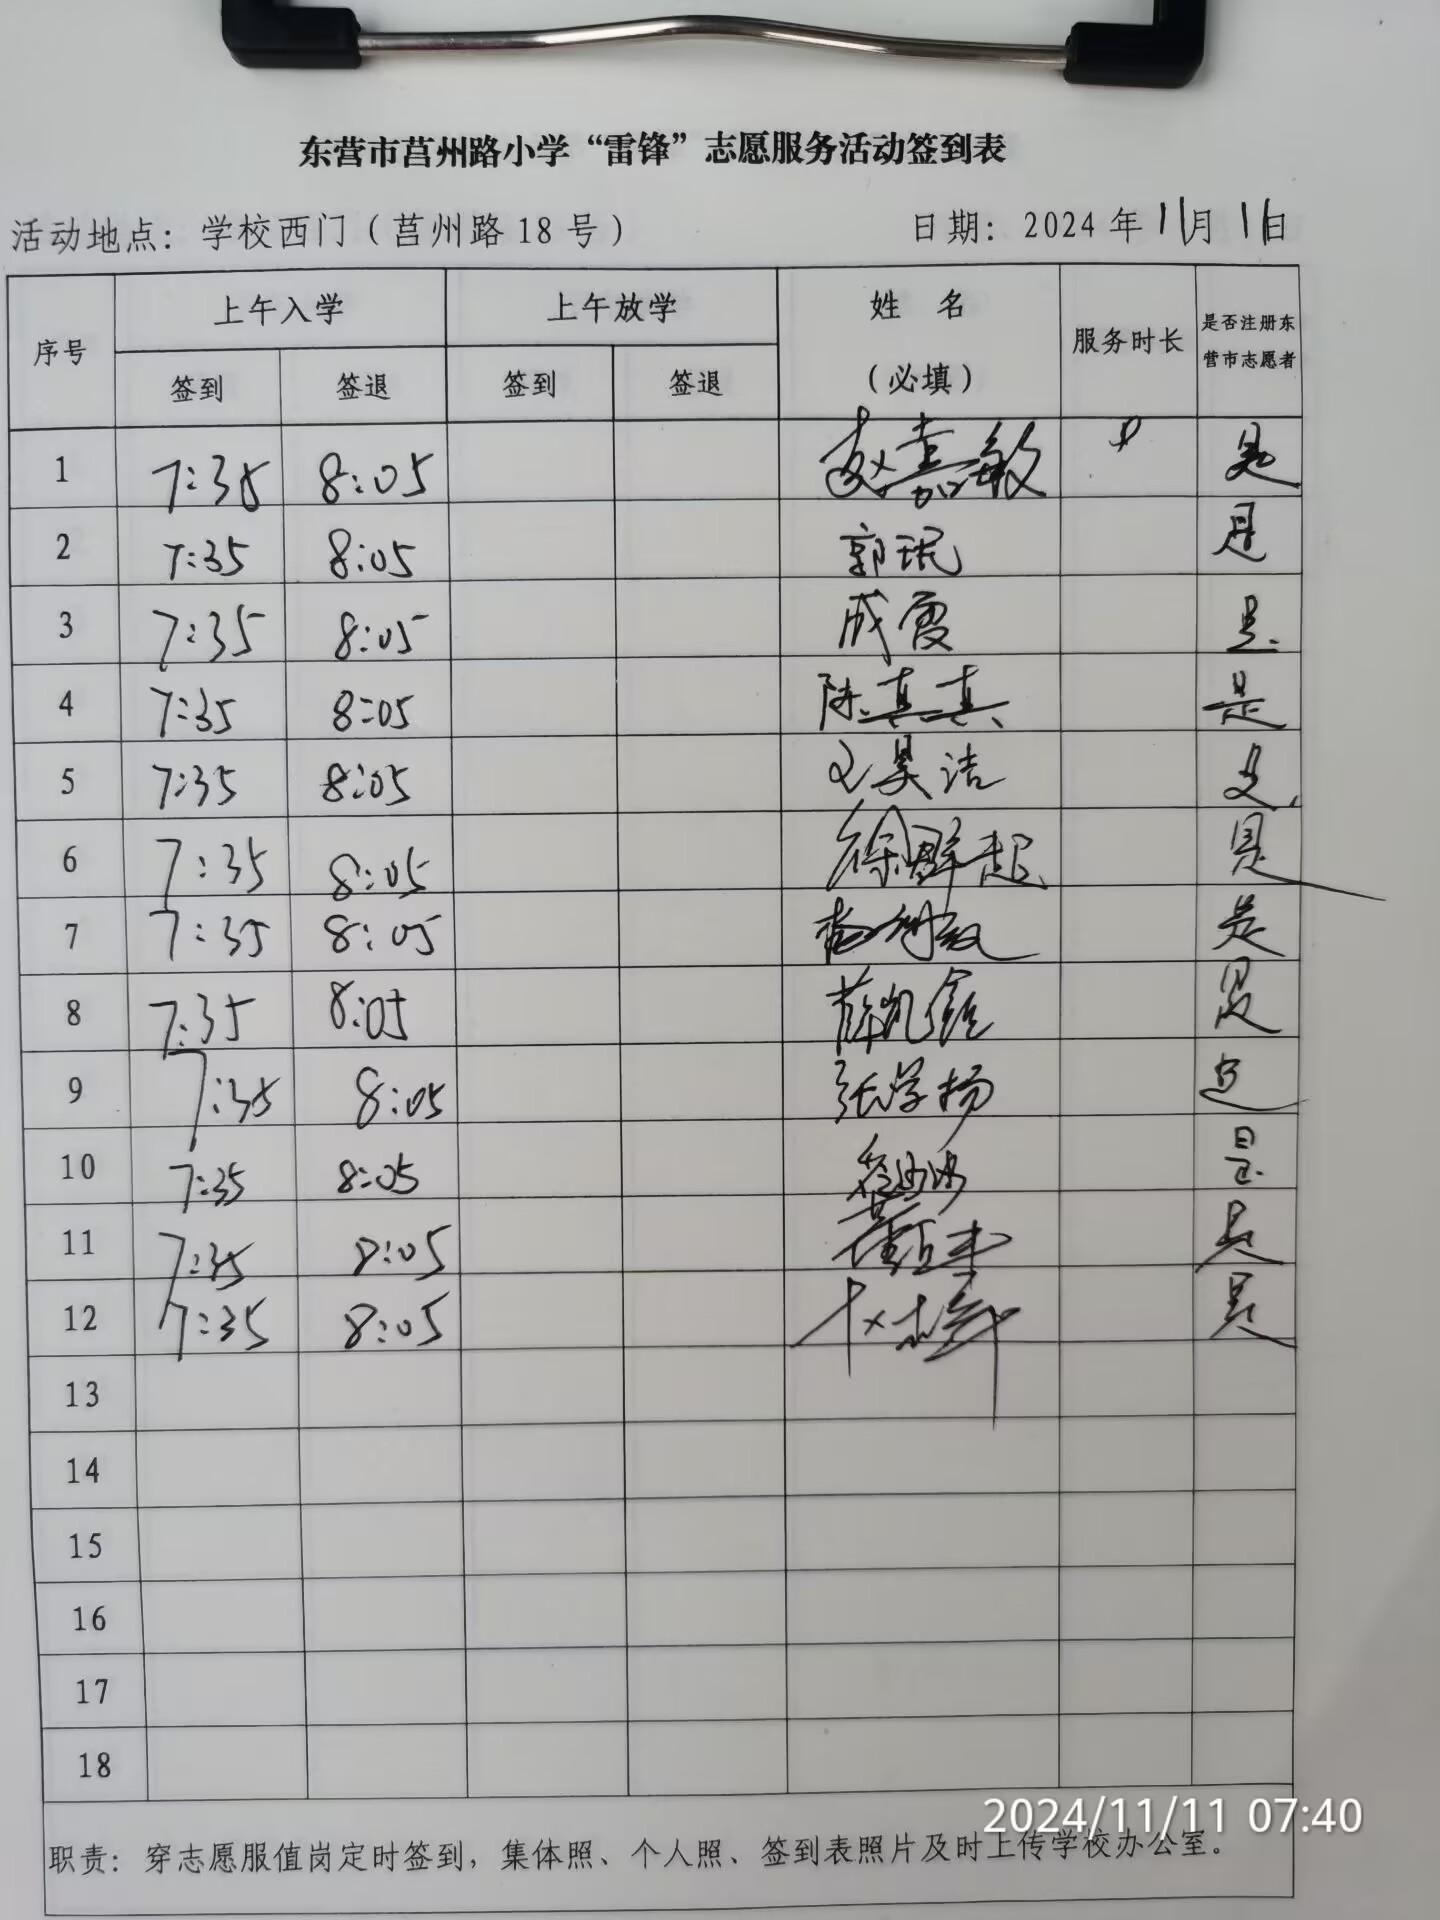 东营市莒州路小学“雷锋”志愿服务活动签到表
活动地点：学校西门（莒州路18号） 日期：2024年11月11日
序号 上午入学 上午放学 姓名 服务时长 是否注册东
签到 签退 签到 签退 （必填） 营市志愿者
1 7:35 8:05 赵嘉敏 是
2 7:35 8:05 郭珉 是
3 7:35 8:05 成霞 是
4 7:35 8:05 陈真真 是
5 7:35 8:05 是
6 7:35 8:05 徐群起 是
7 7:35 8:05 是
8 7:35 8:05 薛凯 是
9 7:35 8:05 张学杨 是
10 7:35 8:05 是
11 7:35 8:05 是
12 7:35 8:05 是
13
14
15
16
17
18
2024/11/11 07:40
职责：穿志愿服值岗定时签到，集体照、个人照、签到表照片及时上传学校办公室。